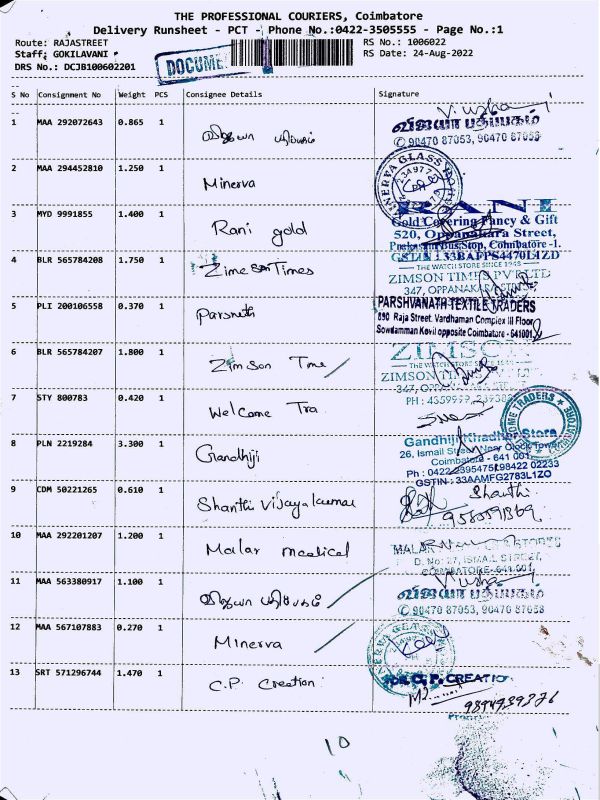 THE PROFESSIONAL COURIERS, Coimbatore
Delivery Runsheet - PCT - Phone No.:0422-3505555 - Page No.:1
Route: RAJASTREET
RS No.: 1006022
Staff: GOKILAVANI
RS Date: 24-Aug-2022
DRS No.: DCJB100602201
DOCUME
S No Consignment No Weight PCS Consignee Details Signature
1 MAA 292072643 0.865 1 விஜயா பதிப்பகம்
விஜயா பதிப்பகம்
✆ 90470 87053, 90470 87058
2 MAA 294452810 1.250 1 Minerva
MINERVA GLASS
3 MYD 9991855 1.400 1 Rani gold
RANI
Gold Covering Fancy & Gift
520, Oppanakara Street,
Bus Stop, Coimbatore -1.
GSTIN : 33BAPPS4470L1ZD
4 BLR 565784208 1.750 1 Zimson Times
THE WATCH STORE SINCE 1948
ZIMSON TIMES PVT LTD
347, OPPANAKARA
5 PLI 200106558 0.370 1 Parsneth
PARSHVANATH TEXTILE TRADERS
890 Raja Street. Vardhaman Complex III Floor
Sowdamman Kovil opposite Coimbatore - 641001
6 BLR 565784207 1.800 1 Zimson Time
ZIMSON
THE WATCH
ZIMSON TI
347, O
PH : 4359999,
7 STY 800783 0.420 1 Welcome Tra
OME TRADERS
COIMBATORE
8 PLN 2219284 3.300 1 Gandhiji
Gandhiji Khadhar Store
26, Ismail Street, Near Clock Tower
Coimbatore - 641 001
Ph : 0422-2395475, 98422 02233
GSTIN : 33AAMFG2783L1ZO
9 CDM 50221265 0.610 1 Shanthi Vijayakumar
Shanthi
10 MAA 292201207 1.200 1 Malar medical
MALAR STORES
D. No: 27, ISMAIL STREET,
COIMBATORE-641 001
11 MAA 563380917 1.100 1 விஜயா பதிப்பகம்
விஜயா பதிப்பகம்
✆ 90470 87053, 90470 87058
12 MAA 567107883 0.270 1 Minerva
MINERVA GLASS
13 SRT 571296744 1.470 1 C.P. Creation
For C. P. CREATIO
9894939376
10